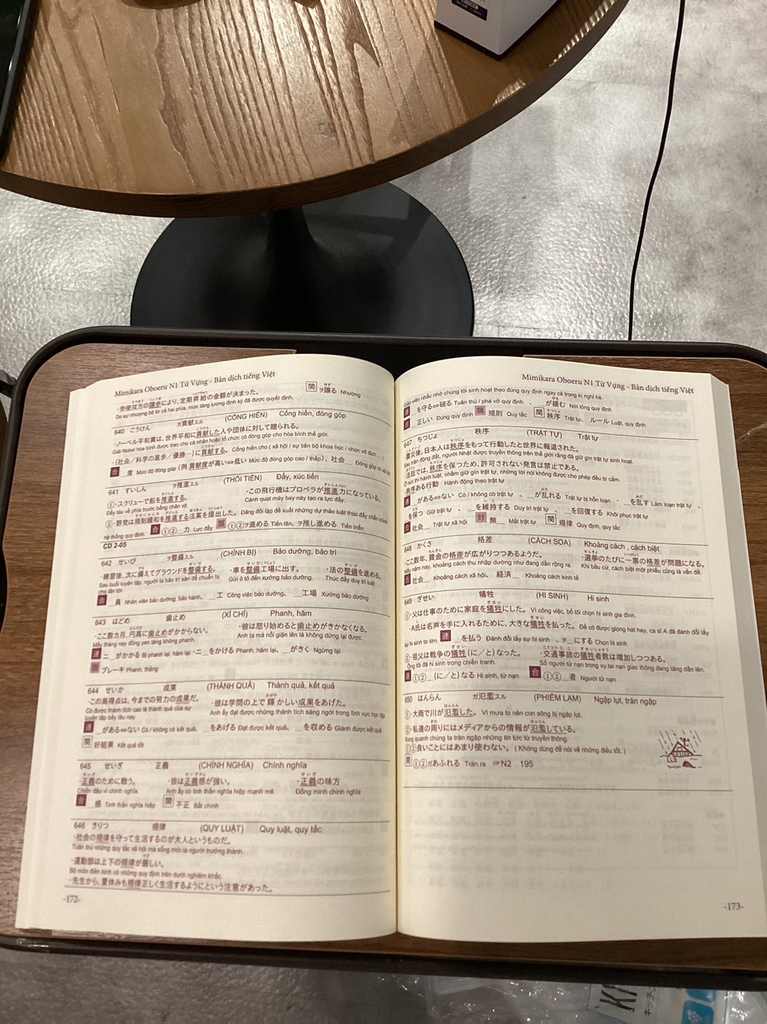 Mimikara Oboeru N1 Từ Vựng - Bản dịch tiếng Việt
・労使双方の譲歩により、定期昇給の金額が決まった。 関 ヲ譲る Nhường
Do sự nhượng bộ từ cả hai phía, mức tăng lương định kỳ đã được quyết định.
640 こうけん ガ貢献スル (CỐNG HIẾN) Cống hiến, đóng góp
・ノーベル平和賞は、世界平和に貢献した人や団体に対して贈られる。
・(社会/科学の進歩/優勝…)に貢献する。
641 すいしん ヲ推進スル (THÔI TIẾN) Đẩy, xúc tiến
・①スクリューで船を推進する。 ・この飛行機はプロペラが推進力になっている。
Đẩy tàu về phía trước bằng chân vịt Cánh quạt máy bay này tạo ra lực đẩy.
・②野党は規制緩和を推進する法案を提出した。
合 ①②力 Lực đẩy 類 ①②ヲ進める Tiến lên, ヲ推し進める Tiến triển
CD 2-05
642 せいび ヲ整備スル (CHỈNH BỊ) Bảo dưỡng, bảo trì
・練習後、次に備えてグラウンドを整備する。 ・車を整備工場に出す。 ・法の整備を進める。
Gửi ô tô đến xưởng bảo dưỡng. Thúc đẩy duy trì luật
合 __員 Nhân viên bảo dưỡng, bảo hành, __工 Công việc bảo dưỡng, __工場 Xưởng bảo dưỡng
643 はどめ 歯止め (XỈ CHỈ) Phanh, hãm
・ここ数カ月、円高に歯止めがかからない。 ・彼は怒り始めると歯止めがきかなくなる。
Mấy tháng này đồng yên tăng không phanh. Anh ta mà nổi giận lên là không dừng lại được.
連 ニ__がかかる Bị phanh lại, hãm lại ⇔ニ__をかける Phanh, hãm lại, __がきく Ngừng lại
類 ブレーキ Phanh, thắng
644 せいか 成果 (THÀNH QUẢ) Thành quả, kết quả
・この高得点は、今までの努力の成果だ。 ・彼は学問の上で輝かしい成果をあげた。
Có được thành tích cao là thành quả của sự Anh ấy đạt được những thành tích sáng ngời trong lĩnh vực học tập
luyện tập bấy lâu nay
連 __がある⇔ない Có / không có kết quả, __をあげる Đạt được kết quả, __を収める Giành được kết quả
関 好結果 Kết quả tốt
645 せいぎ 正義 (CHÍNH NGHĨA) Chính nghĩa
・正義のために戦う。 ・彼は正義感が強い。 ・正義の味方
Chiến đấu vì chính nghĩa. Anh ấy có tinh thần nghĩa hiệp mạnh mẽ. Đồng minh chính nghĩa
合 __感 Tinh thần nghĩa hiệp 関 不正 Bất chính
646 きりつ 規律 (QUY LUẬT) Quy luật, quy tắc
・社会の規律を守って生活するのが大人というものだ。
Tuân thủ những quy tắc xã hội mà sống mới là người trưởng thành.
・運動部は上下の規律が厳しい。
Bộ môn điền kinh có những quy định trên dưới nghiêm khắc.
・先生から、夏休みも規律正しく生活するようにという注意があった。
-172-
Mimikara Oboeru N1 Từ Vựng - Bản dịch tiếng Việt
Giáo viên nhắc nhở chúng tôi sinh hoạt theo đúng quy định ngay cả trong kì nghỉ hè.
連 __を守る⇔破る Tuân thủ / phá vỡ quy định, __が緩む Nới lỏng quy định
合 __正しい Đúng quy định 類 規則 Quy tắc 関 秩序 Trật tự, ルール Luật, quy định
647 ちつじょ 秩序 (TRẬT TỰ) Trật tự
・震災後、日本人は秩序をもって行動したと世界に報道された。
・法廷では、秩序を保つため、許可されない発言は禁止である。
・秩序ある行動 Hành động theo trật tự
連 __がある⇔ない Có / không có trật tự, __が乱れる Trật tự bị hỗn loạn, __を乱す Làm loạn trật tự,
__を保つ Giữ trật tự, __を維持する Duy trì trật tự, __を回復する Khôi phục trật tự
合 社会__ Trật tự xã hội 対 無__ Mất trật tự 関 規律 Quy định, quy tắc
648 かくさ 格差 (CÁCH SOA) Khoảng cách, cách biệt
・ここ数年、賃金の格差が広がりつつあるようだ。 ・選挙のたびに一票の格差が問題になる。
Mấy năm nay, khoảng cách thu nhập dường như đang dần rộng ra. Khi bầu cử, cách biệt một phiếu cũng là vấn đề.
合 社会__ Khoảng cách xã hội, 経済__ Khoảng cách kinh tế
649 ぎせい 犠牲 (HI SINH) Hi sinh
・①父は仕事のために家庭を犠牲にした。 Vì công việc, bố tôi chọn hi sinh gia đình.
・A氏は名声を手に入れるために、大きな犠牲を払った。
sự hi sinh to lớn. 連 __を払う Đánh đổi lấy sự hi sinh, ヲ__にする Chọn hi sinh
・②祖父は戦争の犠牲(に/と)なった。 ・交通事故の犠牲者数は増加しつつある。
Ông tôi đã hi sinh trong chiến tranh. Số người tử nạn trong vụ tai nạn giao thông đang tăng dần lên.
連 ①②__(に/と)なる Hi sinh, tử nạn 合 ②__者 Người tử nạn
650 はんらん ガ氾濫スル (PHIẾM LẠM) Ngập lụt, tràn ngập
・①大雨で川が氾濫した。 Vì mưa to nên con sông bị ngập lụt.
・②私達の周りにはメディアからの情報が氾濫している。
Xung quanh chúng ta tràn ngập những tin tức từ truyền thông.
*②良いことにはあまり使わない。( Không dùng để nói về những điều tốt. )
関 ①②ガあふれる Tràn ra ☞N2 195
-173-